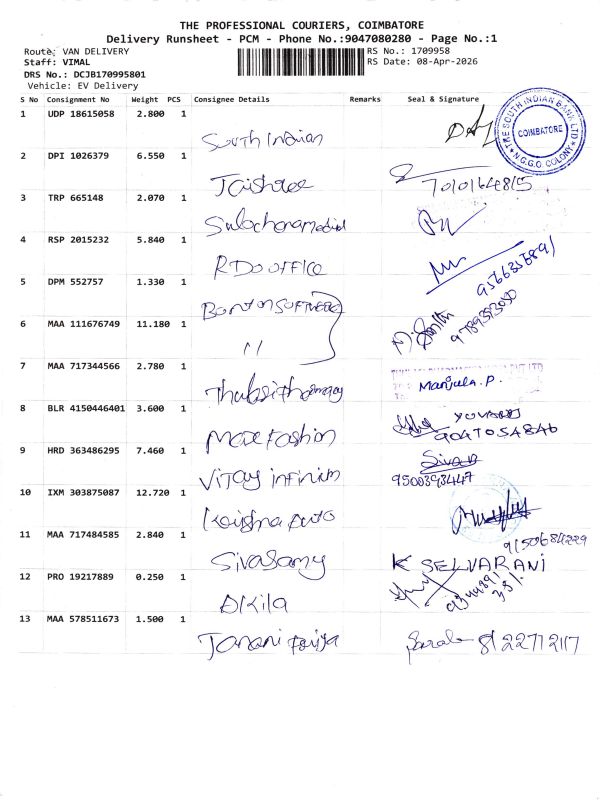 THE PROFESSIONAL COURIERS, COIMBATORE
Delivery Runsheet - PCM - Phone No.:9047080280 - Page No.:1
Route: VAN DELIVERY
RS No.: 1709958
Staff: VIMAL
RS Date: 08-Apr-2026
DRS No.: DCJB170995801
Vehicle: EV Delivery
S No Consignment No Weight PCS Consignee Details Remarks Seal & Signature
1 UDP 18615058 2.800 1
South Indian
THE SOUTH INDIAN BANK LTD
COIMBATORE
N.G.G.O. COLONY
2 DPI 1026379 6.550 1
Jaishree 7010164815
3 TRP 665148 2.070 1
4 RSP 2015232 5.840 1
RDO OFFICE
5 DPM 552757 1.330 1
6 MAA 111676749 11.180 1
11
7 MAA 717344566 2.780 1
Manjula.P.
8 BLR 4150446401 3.600 1
Max Fashion
9047054846
9 HRD 363486295 7.460 1
Sivan
Vijay infinium 9500393447
10 IXM 303875087 12.720 1
Krishna Auto
11 MAA 717484585 2.840 1
9150684229
Sivasamy K SELVARANI
12 PRO 19217889 0.250 1
Akila
13 MAA 578511673 1.500 1
Janani Priya 8122712117